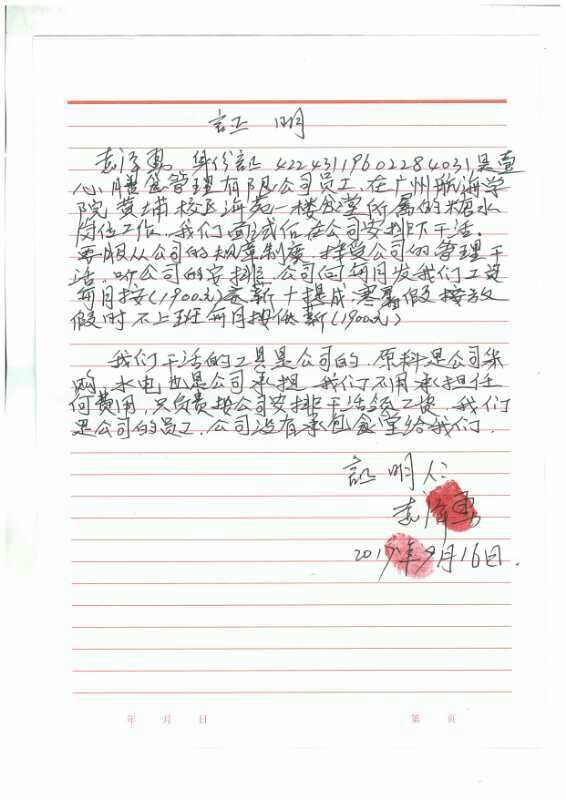 証 明
李泽勇 身份証 42243119602284031是壹
心膳食管理有限公司员工,在广州航海学
院黄埔校区海苑一楼食堂所属的糖水
岗位工作,我们面试后在公司安排下干活。
要服从公司的规章制度,接受公司的管理干
活,听公司的安排,公司何每月发我们工资
每月按(1900元)底薪+提成,寒暑假按放
假时不上班每月按底薪(1900元)
我们干活的工具是公司的,原料是公司采
购,水电也是公司承担,我们不用承担任
何费用,只负责按公司安排干活领工资,我们
是公司的员工,公司没有承包食堂给我们.
証明人:
李泽勇
2017年9月16日.
年 月 日 第 页